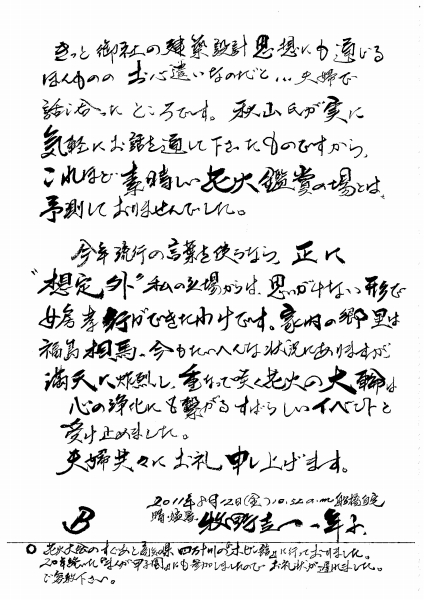 きっと御社の建築設計思想にも通じる
ほんものの お心遣いなのだと… 夫婦で
話し合った ところです。 秋山氏が実に
気軽にお話を通して下さったものですから、
これほど 素晴しい花火鑑賞の場とは、
予測しておりませんでした。
今年流行の言葉を使うなら、正に
“想定外” 私の立場からは、思いがけない形で
女房孝行ができたわけです。家内の郷里は
福島相馬。今もたいへんな状況にありますが
満天に炸裂し、重なって咲く花火の大輪は
心の浄化にも繋がるすばらしいイベントと
受け止めました。
夫婦共々にお礼 申し上げます。
2011年8月12日(金) 10:52 a.m 船橋自宅
晴・猛暑
B 牧野
花火大会のすぐあと高知県 四万十川の に行っておりました。
お礼状が遅れました。
ご容赦下さい。